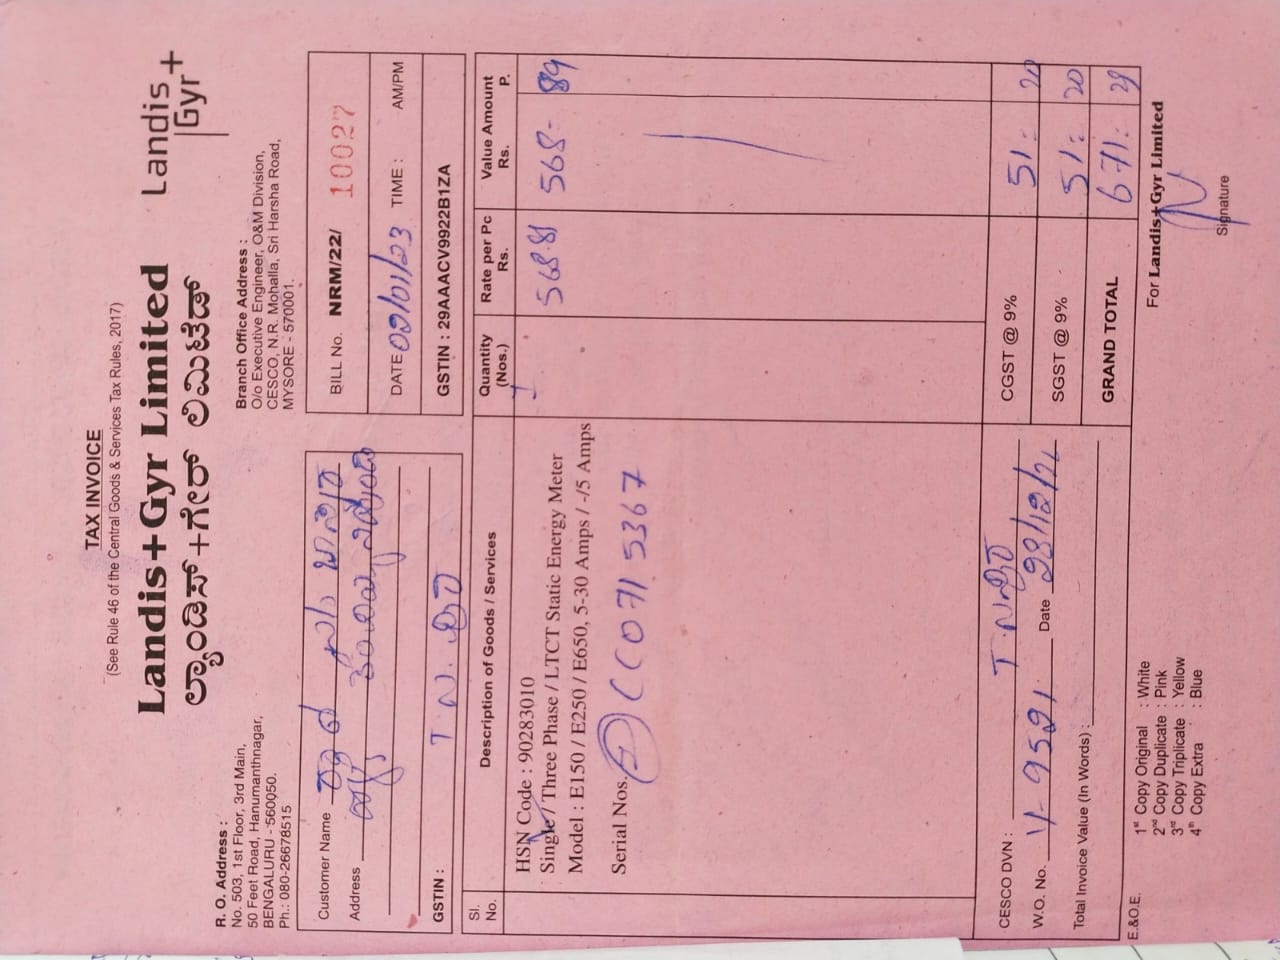 TAX INVOICE
(See Rule 46 of the Central Goods & Services Tax Rules, 2017)
Landis+Gyr Limited
Landis
Gyr+
ಲ್ಯಾಂಡಿಸ್+ಗೇರ್ ಲಿಮಿಟೆಡ್
R. O. Address :
No. 503, 1st Floor, 3rd Main,
50 Feet Road, Hanumanthnagar,
BENGALURU - 560050.
Ph.: 080-26678515
Branch Office Address :
O/o Executive Engineer, O&M Division,
CESCO, N.R. Mohalla, Sri Harsha Road,
MYSORE - 570001.
Customer Name
Address
GSTIN : T.ನ.ಪುರ
BILL No. NRM/22/ 10027
DATE 02/01/23 TIME : AM/PM
GSTIN : 29AAACV9922B1ZA
Sl. No. Description of Goods / Services Quantity (Nos.) Rate per Pc Rs. Value Amount Rs. P.
HSN Code : 90283010 1 568.81 568- 89
Single / Three Phase / LTCT Static Energy Meter
Model : E150 / E250 / E650, 5-30 Amps / -/5 Amps
Serial Nos. 0715367
CESCO DVN : T.ನಪುರ
W.O. No. V-9591 Date
Total Invoice Value (In Words) :
CGST @ 9% 51= 20
SGST @ 9% 51= 20
GRAND TOTAL 671= 29
E.&O.E.
1st Copy Original : White
2nd Copy Duplicate : Pink
3rd Copy Triplicate : Yellow
4th Copy Extra : Blue
For Landis+Gyr Limited
Signature